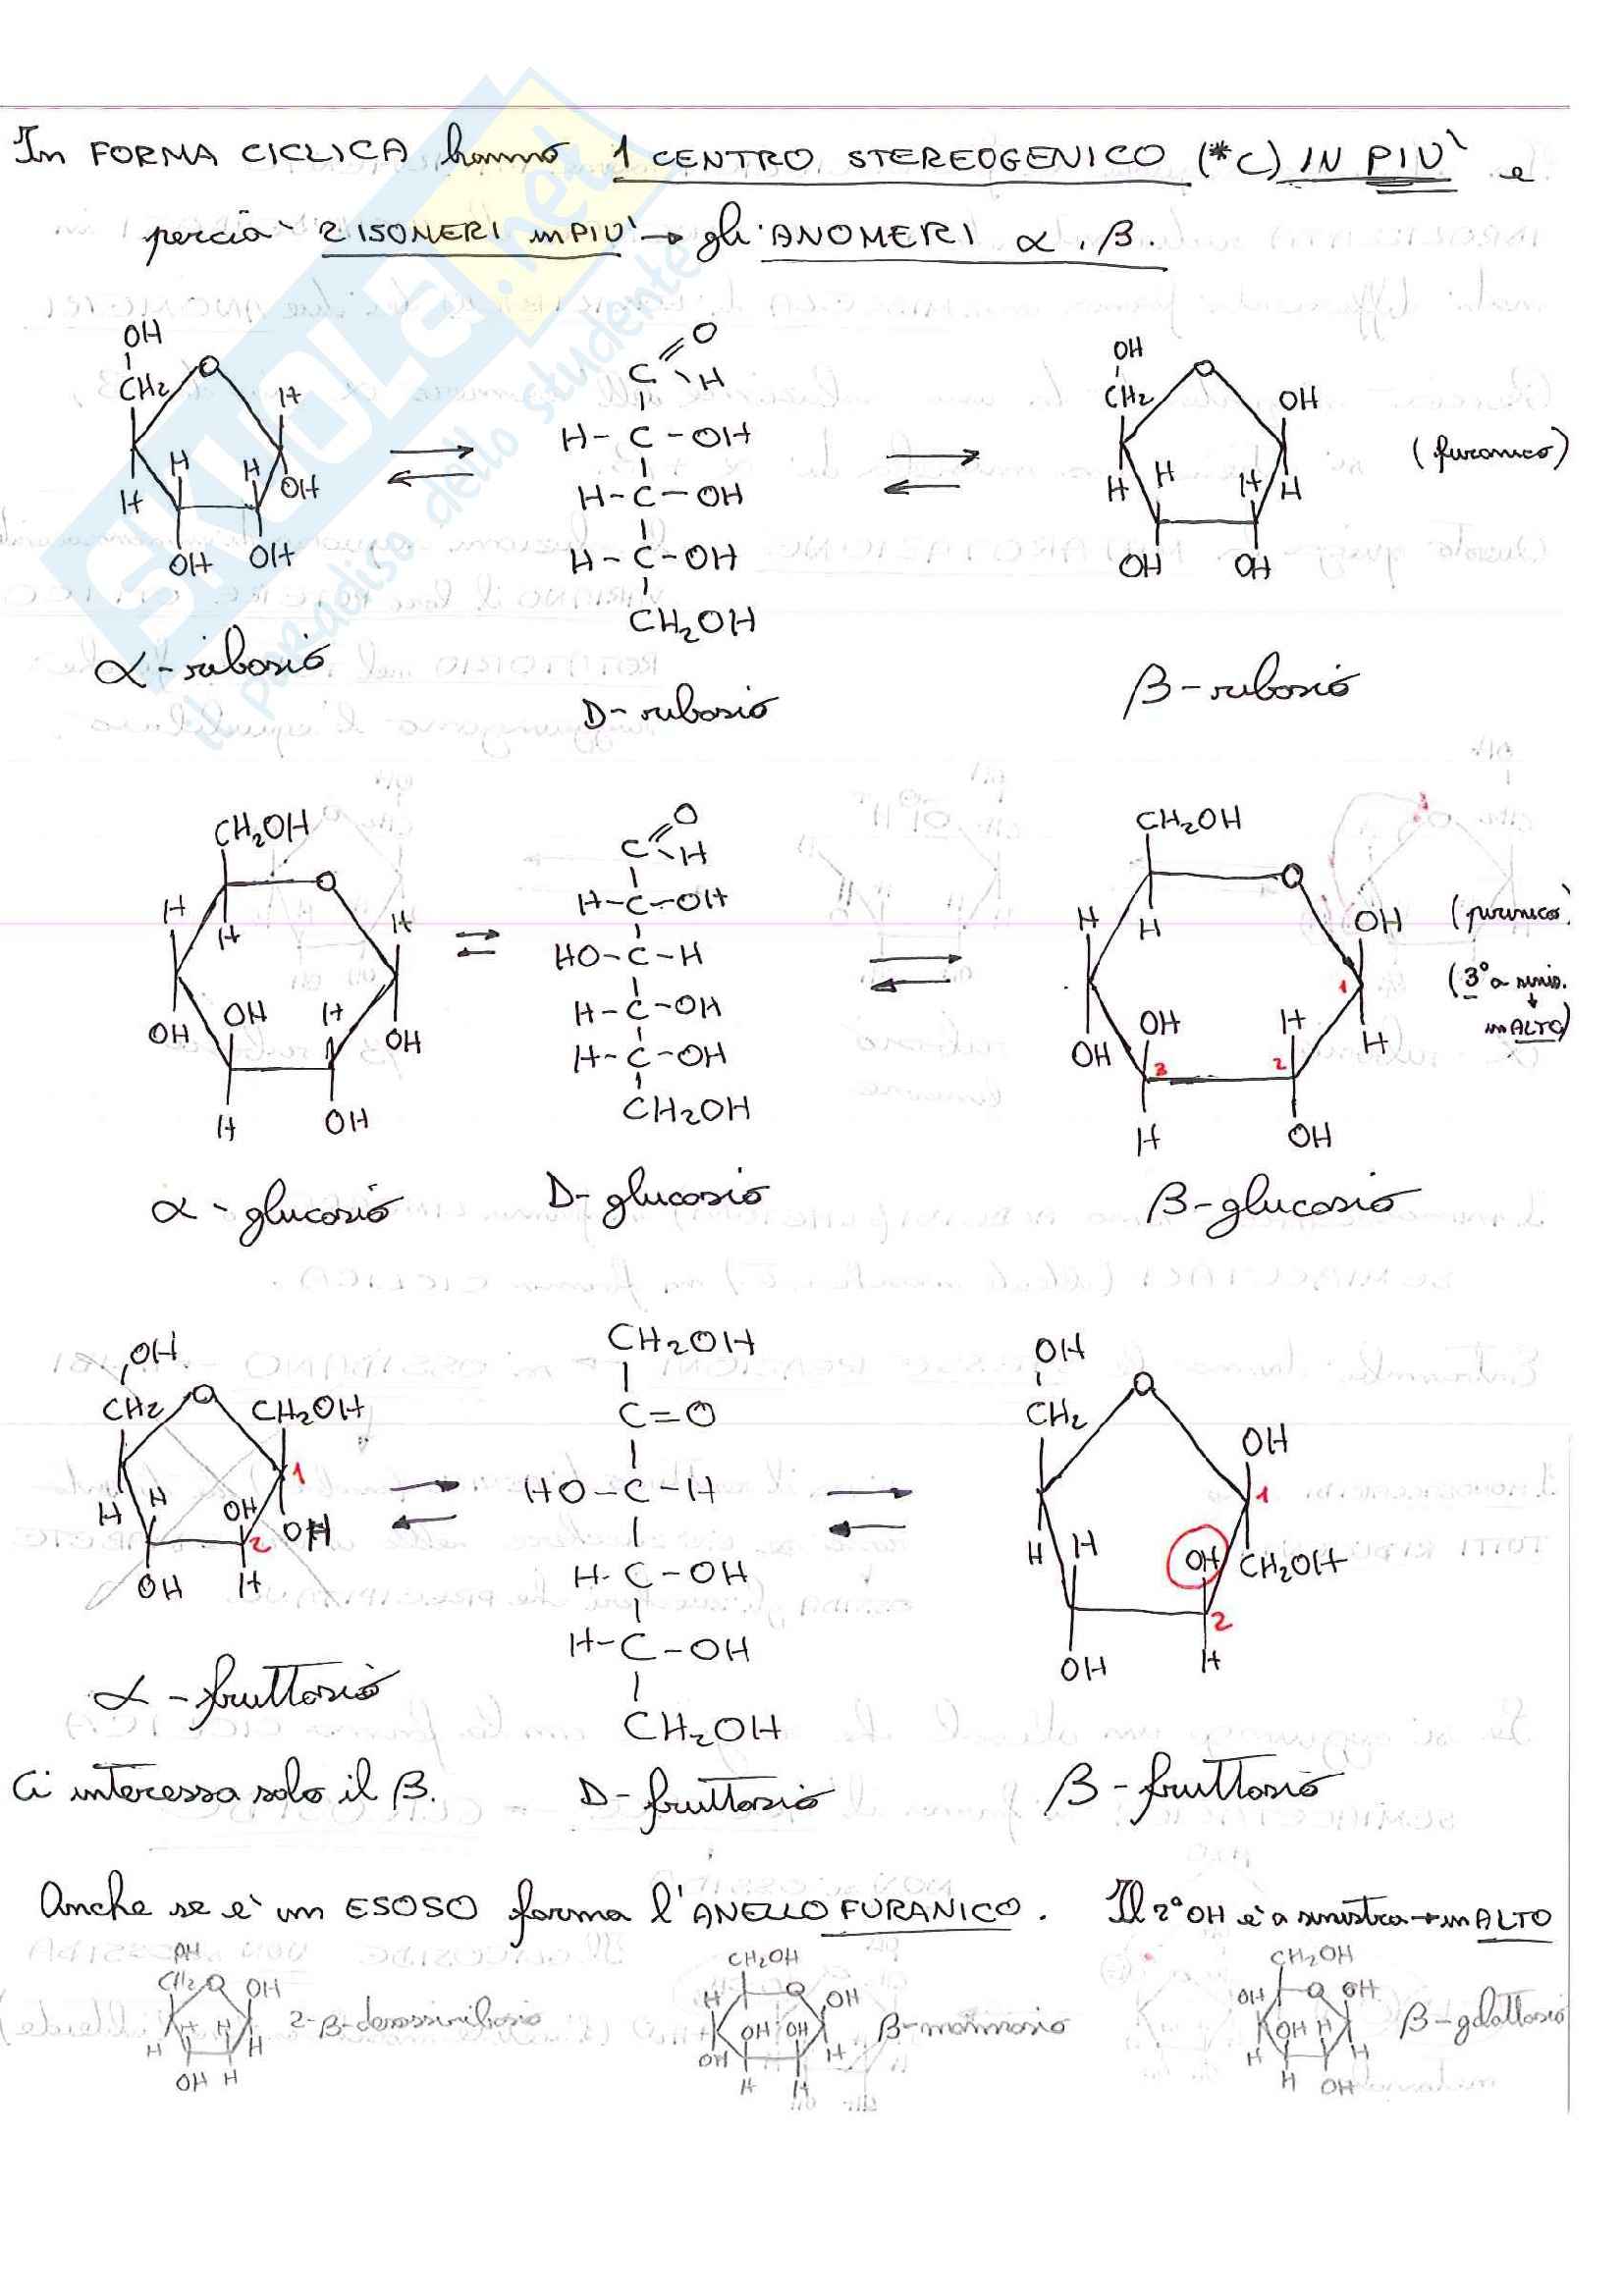 In FORMA CICLICA hanno 1 CENTRO STEREOGENICO (*C) IN PIU' e
perciò 2 ISOMERI in PIU' → gli ANOMERI α, β.
SKUOLA.net
il paradiso dello studente
OH
CH2
O
H
H
H
H
OH
OH
OH
α-ribosio
C
O
H
H-C-OH
H-C-OH
H-C-OH
CH2OH
D-ribosio
OH
CH2
O
OH
H
H
H
H
OH
OH
β-ribosio
(furanico)
CH2OH
O
H
H
H
OH
OH
H
OH
H
OH
α-glucosio
C
O
H
H-C-OH
HO-C-H
H-C-OH
H-C-OH
CH2OH
D-glucosio
CH2OH
O
H
H
OH
1
OH
OH
H
H
3
2
H
OH
β-glucosio
(piranico)
(3° a sinis.
↓
in ALTO)
OH
CH2
O
CH2OH
1
H
H
OH
OH
2
OH
H
α-fruttosio
CH2OH
C=O
HO-C-H
H-C-OH
H-C-OH
CH2OH
D-fruttosio
OH
CH2
O
OH
1
H
H
OH
CH2OH
2
OH
H
β-fruttosio
Ci interessa solo il β.
Anche se è un ESOSO forma l'ANELLO FURANICO. Il 2° OH è a sinistra → in ALTO
OH
CH2
O
OH
H
H
H
H
OH
H
2-β-deossiribosio
CH2OH
H
O
OH
OH
OH
OH
H
H
H
β-mannosio
CH2OH
OH
O
OH
OH
H
H
H
H
OH
β-galattosio